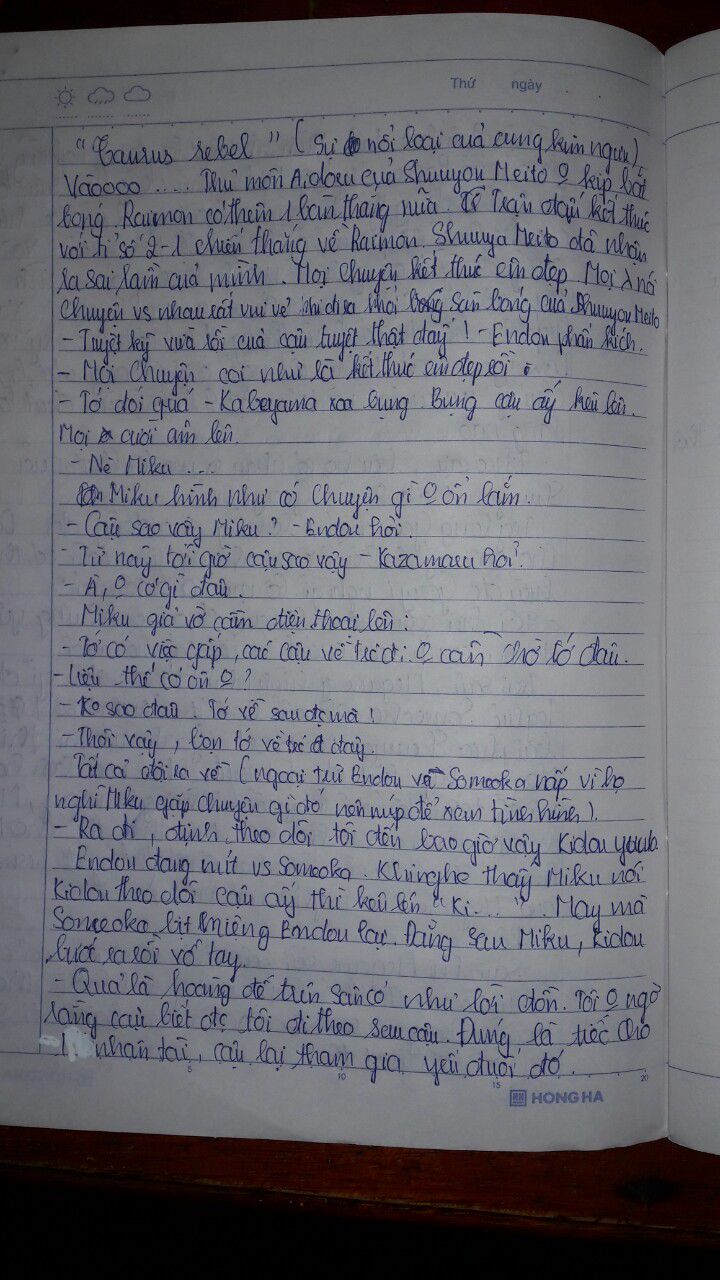 Thứ ngày
"Taurus rebel" (Sự nổi loại cuả cung kim ngưu)
Vàoooo .... Thủ môn Aidoru của Shuuyou Meito O kịp bắt
bóng. Raimon có thêm 1 bàn thắng nữa. Trận đấu kết thúc
với tỉ số 2-1 chiến thắng về Raimon. Shuuya Meito đã nhận
ra sai lầm cuả mình. Mọi chuyện kết thúc êm đẹp. Mọi λ nói
chuyện vs nhau rất vui vẻ khi đi ra khỏi sân bóng cuả Shuuyou Meito
- Tuyệt kỹ vừa rồi cuả cậu tuyệt thật đấy! - Endou phấn khích.
- Mọi chuyện coi như là kết thúc êm đẹp rồi.
- Tớ đói quá - Kabeyama xoa bụng. Bụng cậu ấy kêu lên.
Mọi λ cười ầm lên.
- Nè Miku ....
Miku hình như có chuyện gì O ổn lắm.
- Cậu sao vậy Miku? - Endou hỏi.
- Từ nãy tới giờ cậu sao vậy - Kazamaru hỏi.
- À, O có gì đâu.
Miku giả vờ cầm điện thoại lên:
- Tớ có việc gấp, các cậu về trc đi. O cần chờ tớ đâu.
- Liệu thế có ổn O?
- Ko sao đâu. Tớ về sau đc mà!
- Thôi vậy, bọn tớ về trc đây.
Tất cả đội ra về (ngoại trừ Endou và Someoka nấp vì họ
nghĩ Miku gặp chuyện gì đó nên núp để xem tình hình).
- Ra đi, định theo dõi tôi đến bao giờ vậy Kidou yuuto
Endou đang nút vs Someoka. Khi nghe thấy Miku nói
Kidou theo dõi cậu ấy thì kêu lên "Ki...". May mà
Someoka bịt miệng Endou lại. Đằng sau Miku, Kidou
bước ra rồi vỗ tay.
- Quả là hoàng đế trên sân cỏ như lời đồn. Tôi O ngờ
rằng cậu biết đc tôi đi theo sau cậu. Đúng là tiếc cho
nhân tài, cậu lại tham gia yếu đuối đó.
5 10 15 20
HONG HA